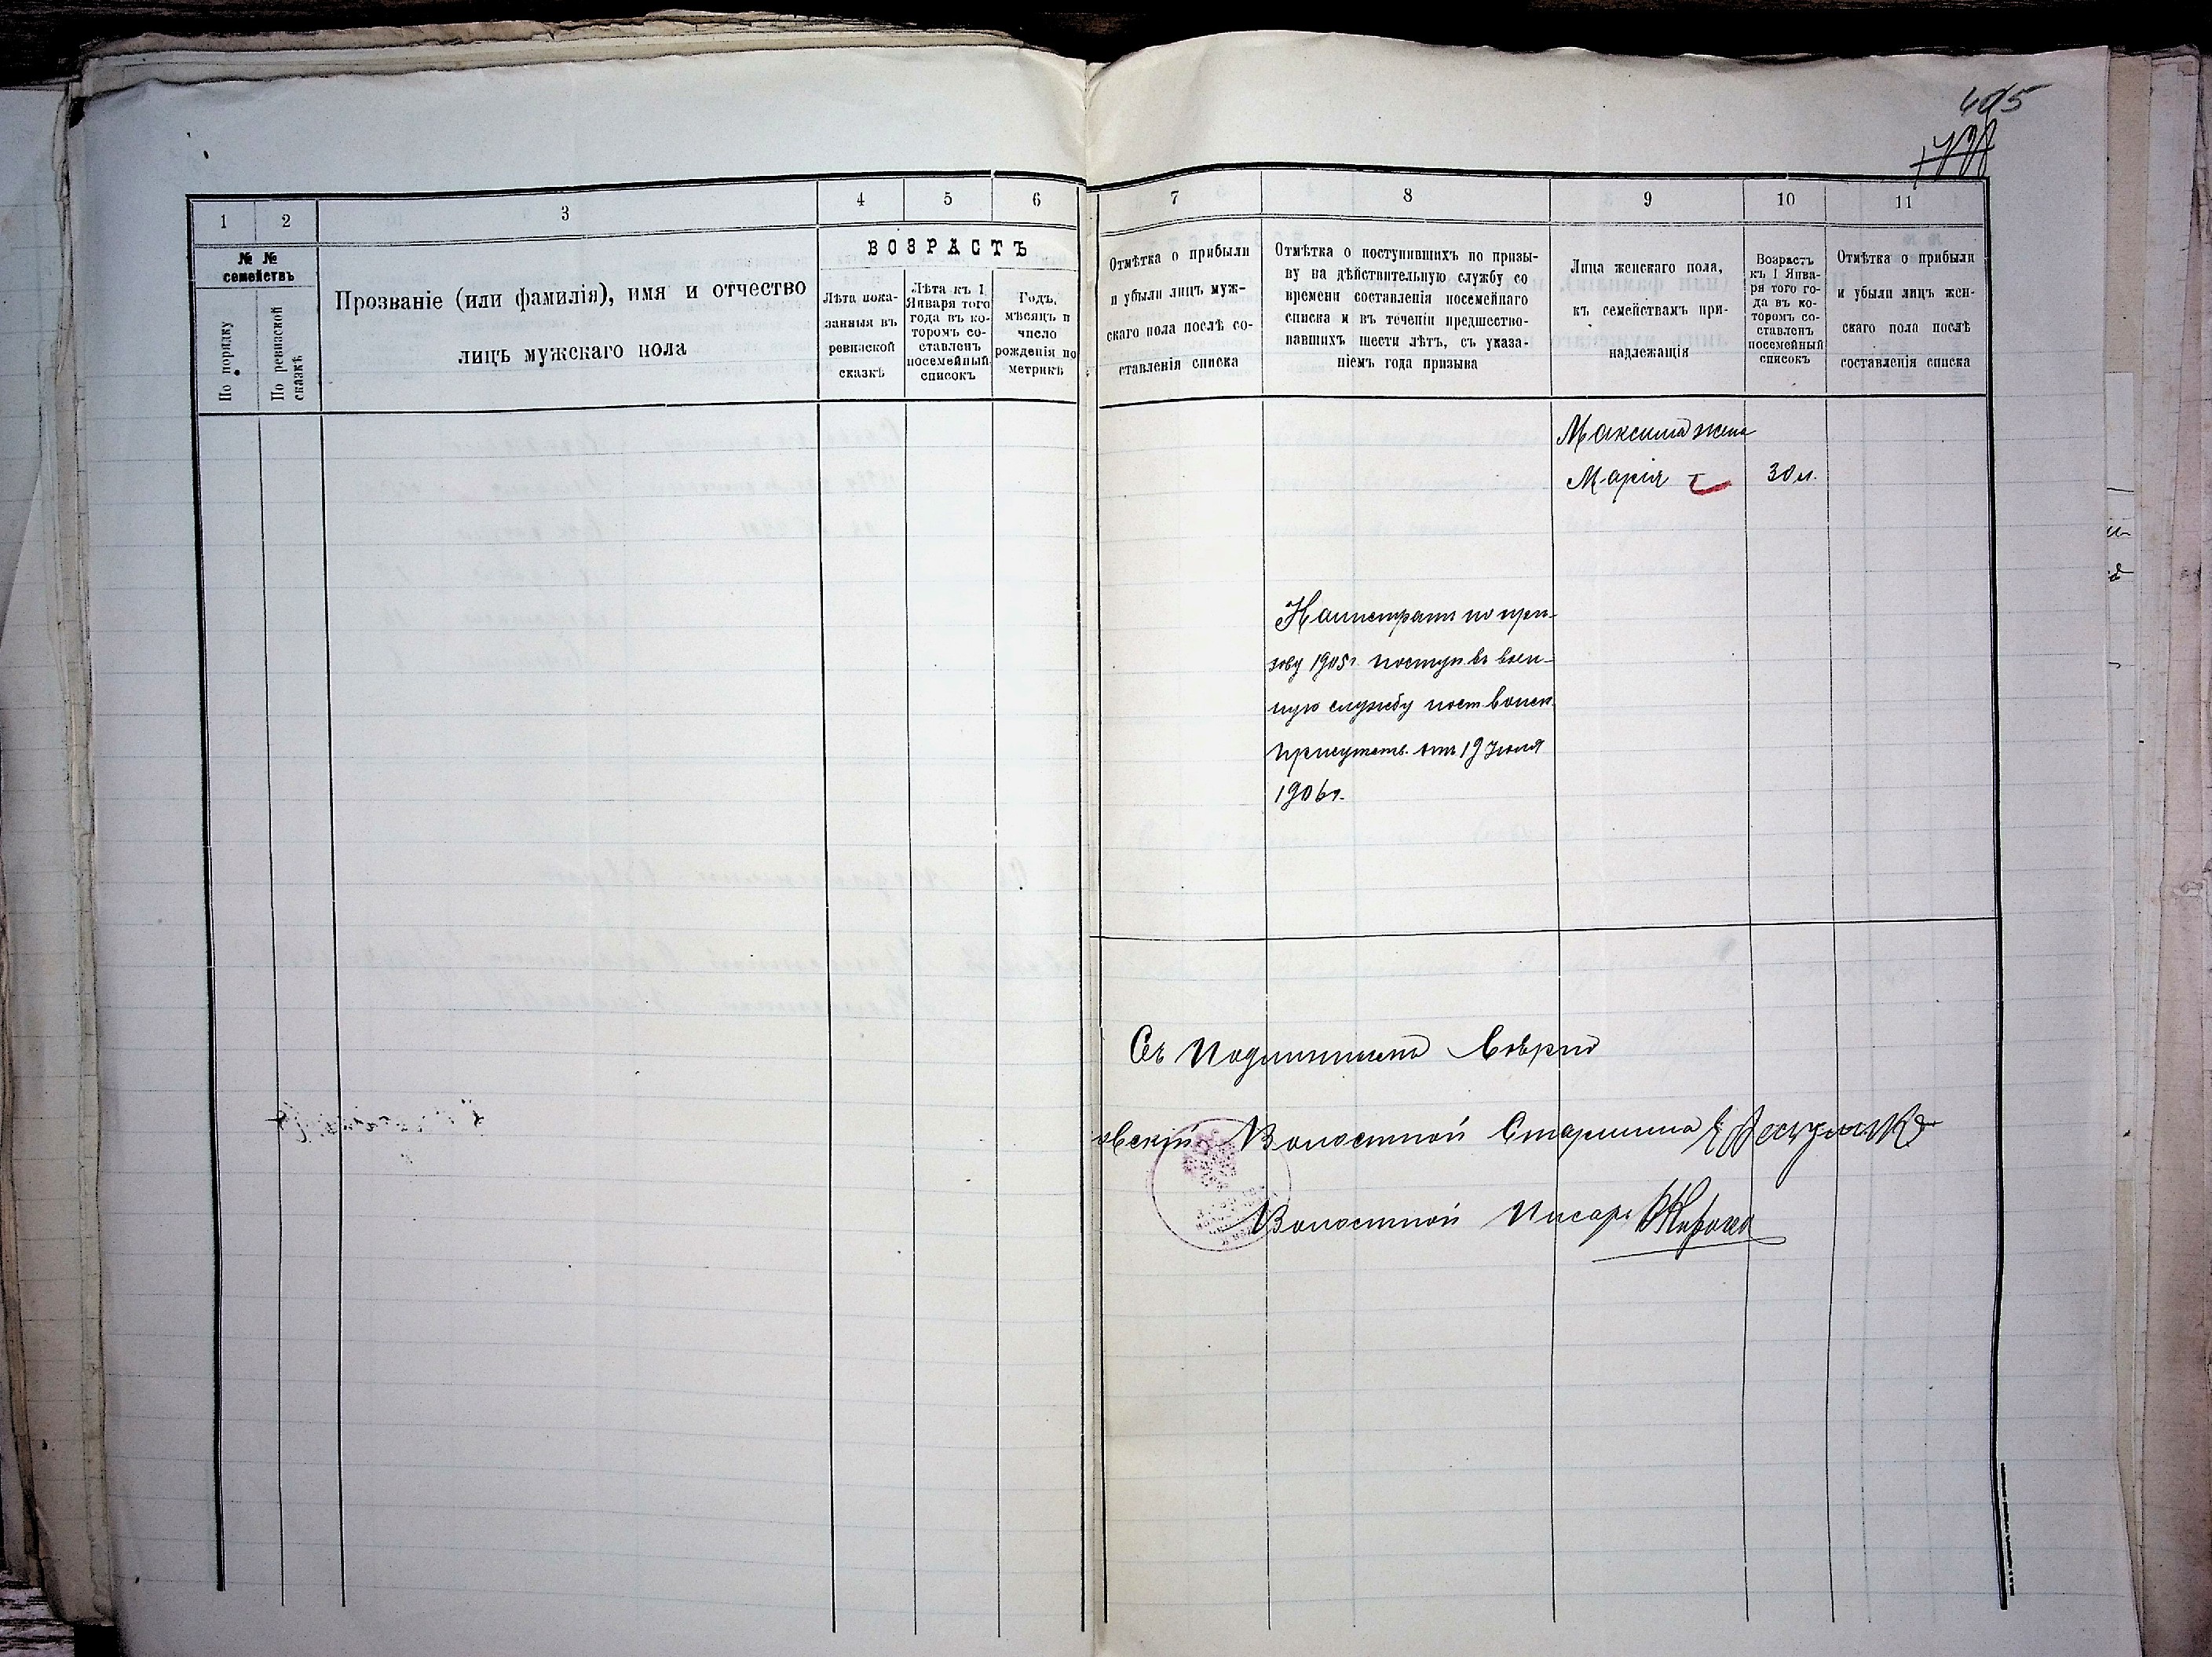 405
1 2 3 4 5 6 7 8 9 10 11
№ № семействъ
По порядку
По ревизской сказкѣ
Прозваніе (или фамилія), имя и отчество
лицъ мужскаго пола
ВОЗРАСТЪ
Лѣта пока-
занныя въ
ревизской
сказкѣ
Лѣта къ 1
Января того
года въ ко-
торомъ со-
ставленъ
посемейный
списокъ
Годъ,
мѣсяцъ и
число
рожденія по
метрикѣ
Отмѣтка о прибыли
и убыли лицъ муж-
скаго пола послѣ со-
ставленія списка
Отмѣтка о поступившихъ по призы-
ву на дѣйствительную службу со
времени составленія посемейнаго
списка и въ теченіи предшество-
вавшихъ шести лѣтъ, съ указа-
ніемъ года призыва
Лица женскаго пола,
къ семействамъ при-
надлежащія
Возрастъ
къ 1 Янва-
ря того го-
да въ ко-
торомъ со-
ставленъ
посемейный
списокъ
Отмѣтка о прибыли
и убыли лицъ жен-
скаго пола послѣ
составленія списка
Максима жена
Марія 30 л.
Калистратъ по при-
зову 1905г. поступ въ воен-
ную службу пост. воинск.
присутств. отъ 19 Іюля
1906г.
Съ подлиннымъ вѣрно
овскій Волостной Старшина
Волостной Писарь